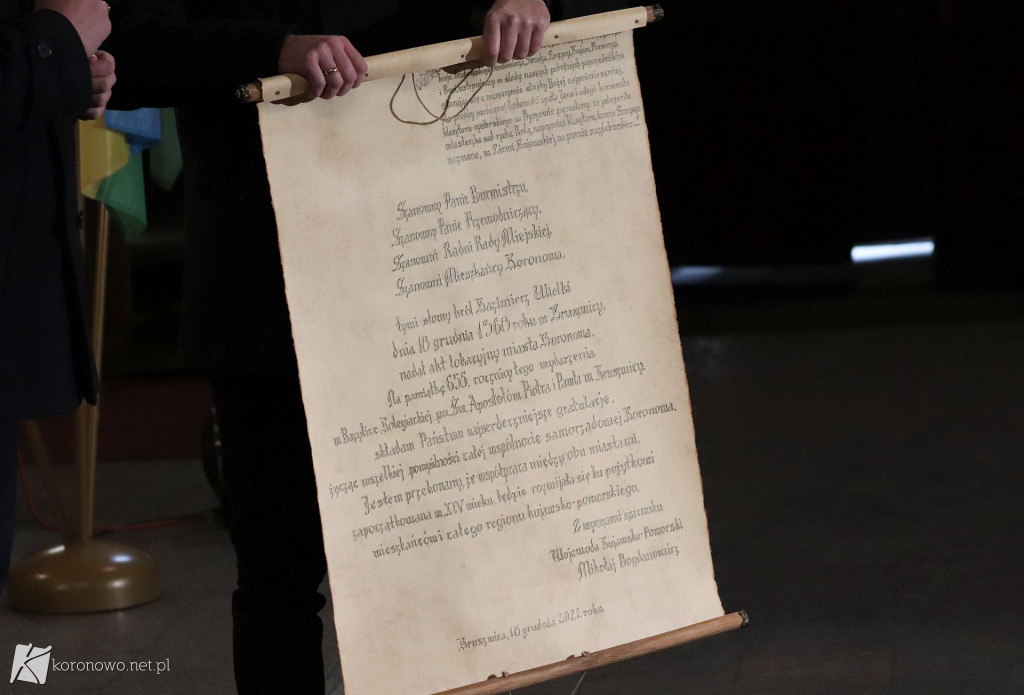 i Rusi, wstępujemy w ślady naszych pobożnych poprzedników
miasteczka nad rzeką Brdą, naprzeciw Klasztoru,
nazwane, w Ziemi Kujawskiej, na prawie magdeburskim [...]
Szanowny Panie Burmistrzu,
Szanowny Panie Przewodniczący,
Szanowni Radni Rady Miejskiej,
Szanowni Mieszkańcy Koronowa,
tymi słowy król Kazimierz Wielki
dnia 18 grudnia 1368 roku w Kruszwicy,
nadał akt lokacyjny miasta Koronowa.
Na pamiątkę 655. rocznicy tego wydarzenia
w Bazylice Kolegiackiej pw. Św. Apostołów Piotra i Pawła w Kruszwicy,
składam Państwu najserdeczniejsze gratulacje,
życząc wszelkiej pomyślności całej wspólnocie samorządowej Koronowa.
Jestem przekonany, że współpraca między obu miastami,
zapoczątkowana w XIV wieku, będzie rozwijała się ku pożytkowi
mieszkańców i całego regionu kujawsko-pomorskiego.
Z wyrazami szacunku
Wojewoda Kujawsko-Pomorski
Mikołaj Bogdanowicz
Kruszwica, 18 grudnia 2022 roku
koronowo.net.pl